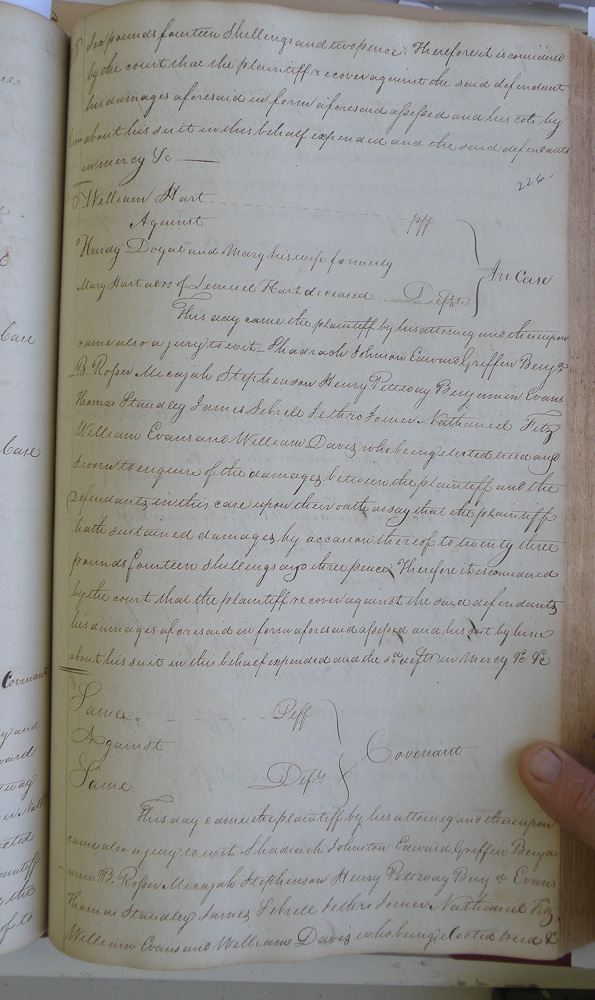 Six pounds fourteen Shellings and two pence. Therefore it is considered
by the court that the plaintiff recover against the said defendant
his damages aforesaid in form aforesaid assessed and his costs by
him about his suit in this behalf expended and the said defendants
in mercy &c
226
William Hart plff
Against
Hardy Doyal and Mary his wife formerly
Mary Hart of Lemuel Hart deceased Defts
In Case
This day came the plaintiff by his attorney and thereupon
came also a jury to wit Shadrach Johnson Edward Griffin Benj a
B. Rosser Mecajah Stephenson Henry Peteway Benjamin Evans
Thomas Standley James Sebrell Jethro Joiner Nathaniel Fitz
William Evans and William Davis who being elected tried and
sworn to enquire of the damages between the plaintiff and the
Defendants in this case upon their oath as say that the plaintiff
hath sustained damages by accasion thereof to twenty three
pounds fourteen Shellings and three pence, Therefore it is considered
by the court that the plaintiff recover against the said defendants
his damages aforesaid in form aforesaid assessed and his cost by him
about his suit in this behalf expended and the sd defts in Mercy &c &c
Same Plff
Against
Same Defts
Covenant
This day came the plaintiff by his attorney and thereupon
came also a jury to with Shadrach Johnston Edward Griffin Benja
min B. Rosser Mecajah Stephenson Henry Peteway Benj a Evans
Thomas Standley James Sebrell Jethro Joiner Nathaniel Fitz
William Evans and William Davis who being elected tried &
Case
Case
Covenant